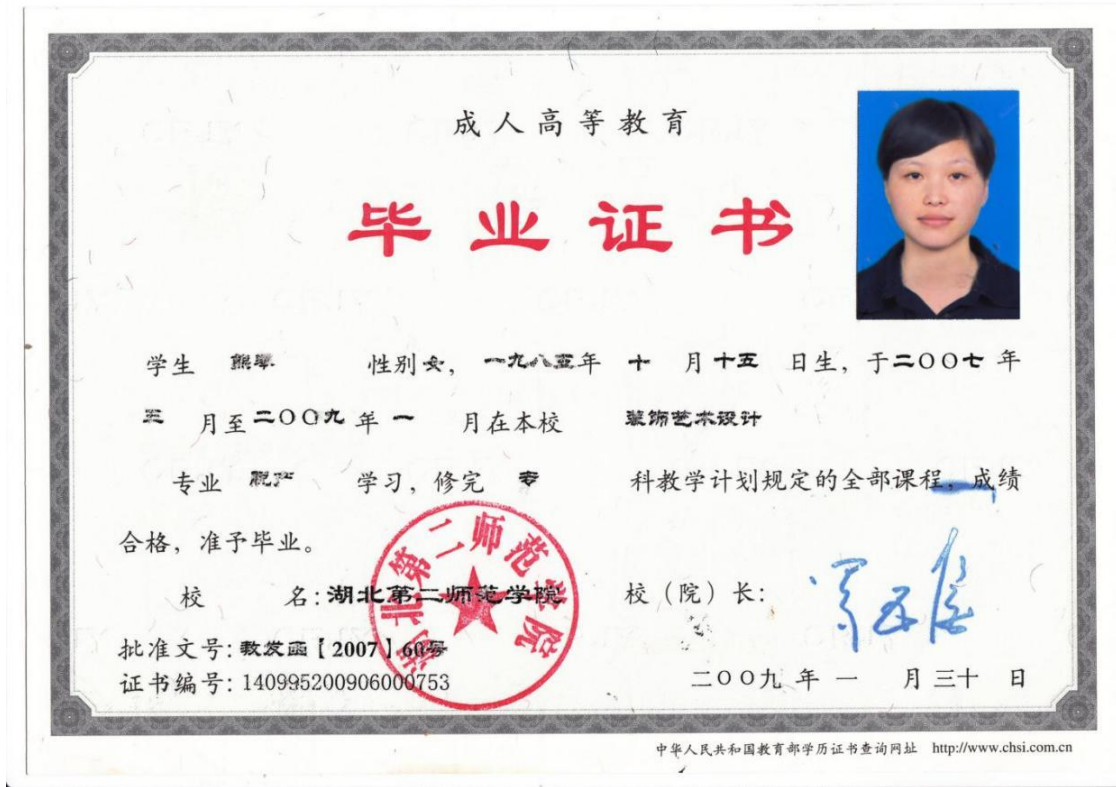 成人高等教育
毕业证书
学生 熊琴 性别女，一九八五年 十 月十五 日生，于二〇〇七 年
三 月至二〇〇九年 一 月在本校 装饰艺术设计
专业 脱产 学习，修完 专 科教学计划规定的全部课程，成绩
合格，准予毕业。
校 名：湖北第二师范学院 校（院）长：
湖北第二师范学院
批准文号：教发函【2007】60号
证书编号：140995200906000753
二〇〇九 年 一 月 三十 日
中华人民共和国教育部学历证书查询网址 http://www.chsi.com.cn